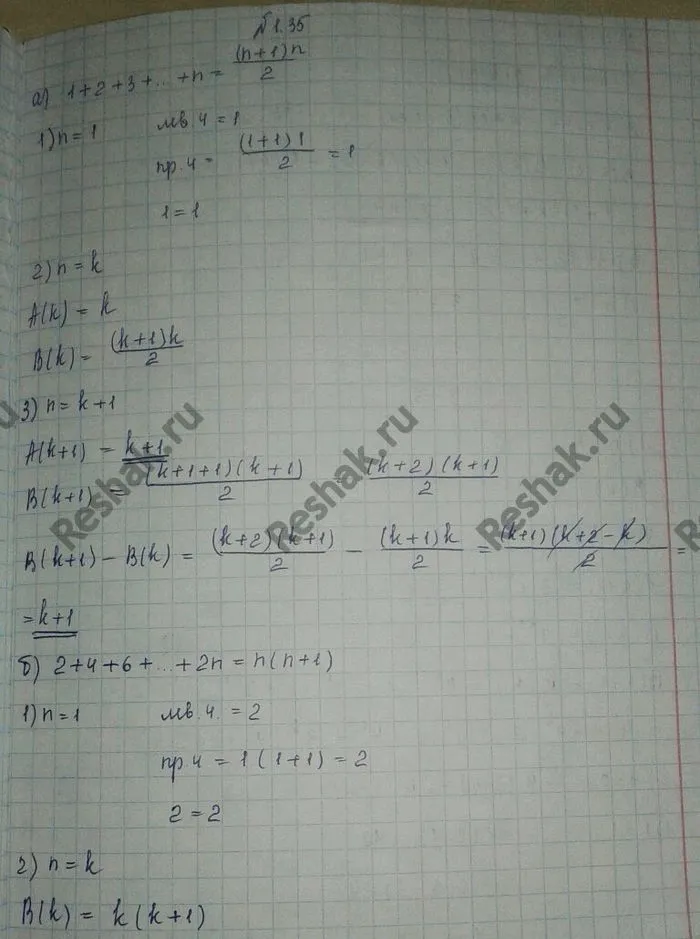 №1.35
а) 1+2+3+...+n = (n+1)n/2
1) n=1 лев.ч = 1
пр.ч = (1+1)1/2 = 1
1=1
2) n=k
A(k) = k
B(k) = (k+1)k/2
3) n=k+1
A(k+1) = k+1
B(k+1) = (k+1+1)(k+1)/2 = (k+2)(k+1)/2
B(k+1) - B(k) = (k+2)(k+1)/2 - (k+1)k/2 = (k+1)(k+2-k)/2 =
= k+1
б) 2+4+6+...+2n = n(n+1)
1) n=1 лев.ч. = 2
пр.ч = 1(1+1) = 2
2=2
2) n=k
B(k) = k(k+1)
Reshak.ru
Reshak.ru
Reshak.ru